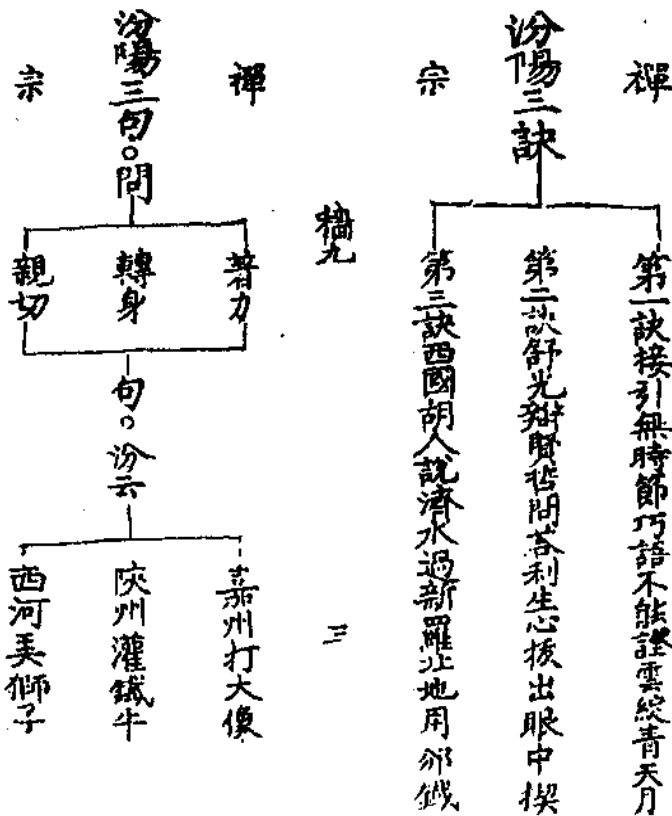 禪
汾陽三訣
宗
第一訣接引無時節巧語不能詮雲綻青天月
第二訣舒光辨賢哲問荅利生心拔出眼中楔
第三訣西國胡人說濟水過新羅北地用邠鐵
九
三
禪
汾陽三句。問
宗
著力
轉身
親切
句。汾云
嘉州打大像
陝州灌鐵牛
西河弄獅子